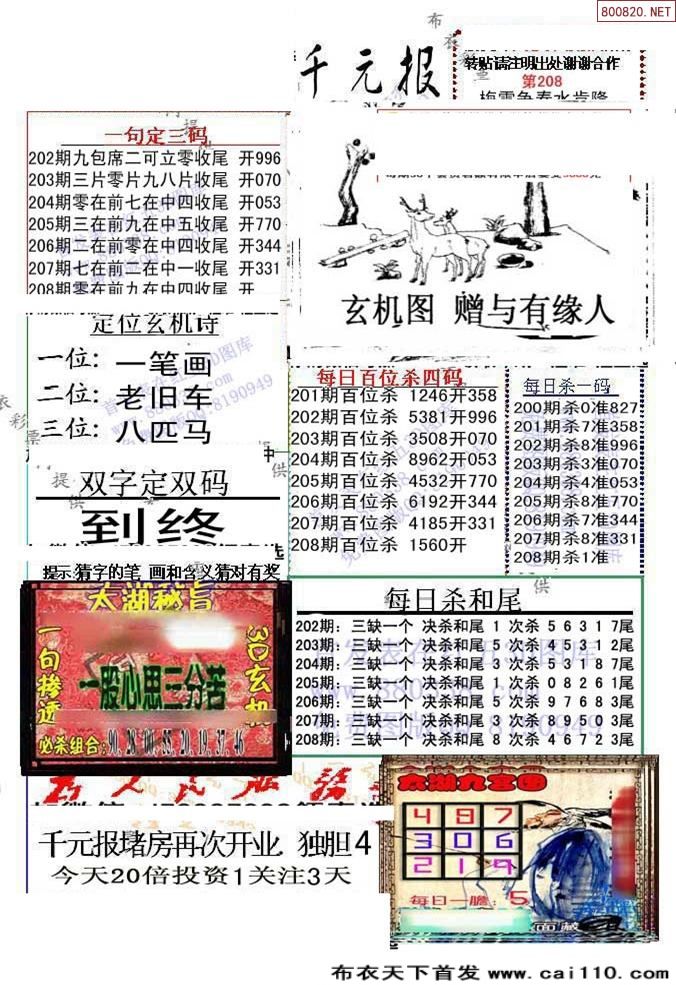 800820.NET
布衣彩票
千元报
转贴请注明出处谢谢合作
第208
梅雪争春水肯降
一句定三码
202期九包席二可立零收尾 开996
203期三片零片九八片收尾 开070
204期零在前七在中四收尾 开053
205期三在前九在中五收尾 开770
206期二在前零在中四收尾 开344
207期七在前一在中一收尾 开331
208期零在前九在中四收尾 开
玄机图 赠与有缘人
定位玄机诗
一位: 一笔画
二位: 老旧车
三位: 八匹马
双字定双码
到终
提示:猜字的笔 画和含义猜对有奖
每日百位杀四码
201期百位杀 1246开358
202期百位杀 5381开996
203期百位杀 3508开070
204期百位杀 8962开053
205期百位杀 4532开770
206期百位杀 6192开344
207期百位杀 4185开331
208期百位杀 1560开
每日杀一码
200期杀0准827
201期杀7准358
202期杀8准996
203期杀3准070
204期杀4准053
205期杀8准770
206期杀7准344
207期杀8准331
208期杀1准
提供
太湖秘旨
一句掺透
3D玄机
一股心思三分苦
必杀组合:90.28.00.85.20.19.37.46
每日杀和尾
202期: 三缺一个 决杀和尾 1 次杀 5 6 3 1 7尾
203期: 三缺一个 决杀和尾 5 次杀 4 5 3 1 2尾
204期: 三缺一个 决杀和尾 3 次杀 5 3 1 8 7尾
205期: 三缺一个 决杀和尾 1 次杀 0 8 2 6 1尾
206期: 三缺一个 决杀和尾 5 次杀 9 7 6 8 3尾
207期: 三缺一个 决杀和尾 3 次杀 8 9 5 0 3尾
208期: 三缺一个 决杀和尾 8 次杀 4 6 7 2 3尾
千元报堵房再次开业 独胆4
今天20倍投资1关注3天
太湖九宫图
4 8 7
3 0 6
2 1 9
每日一胆: 5
布衣天下首发 www.cai110.com